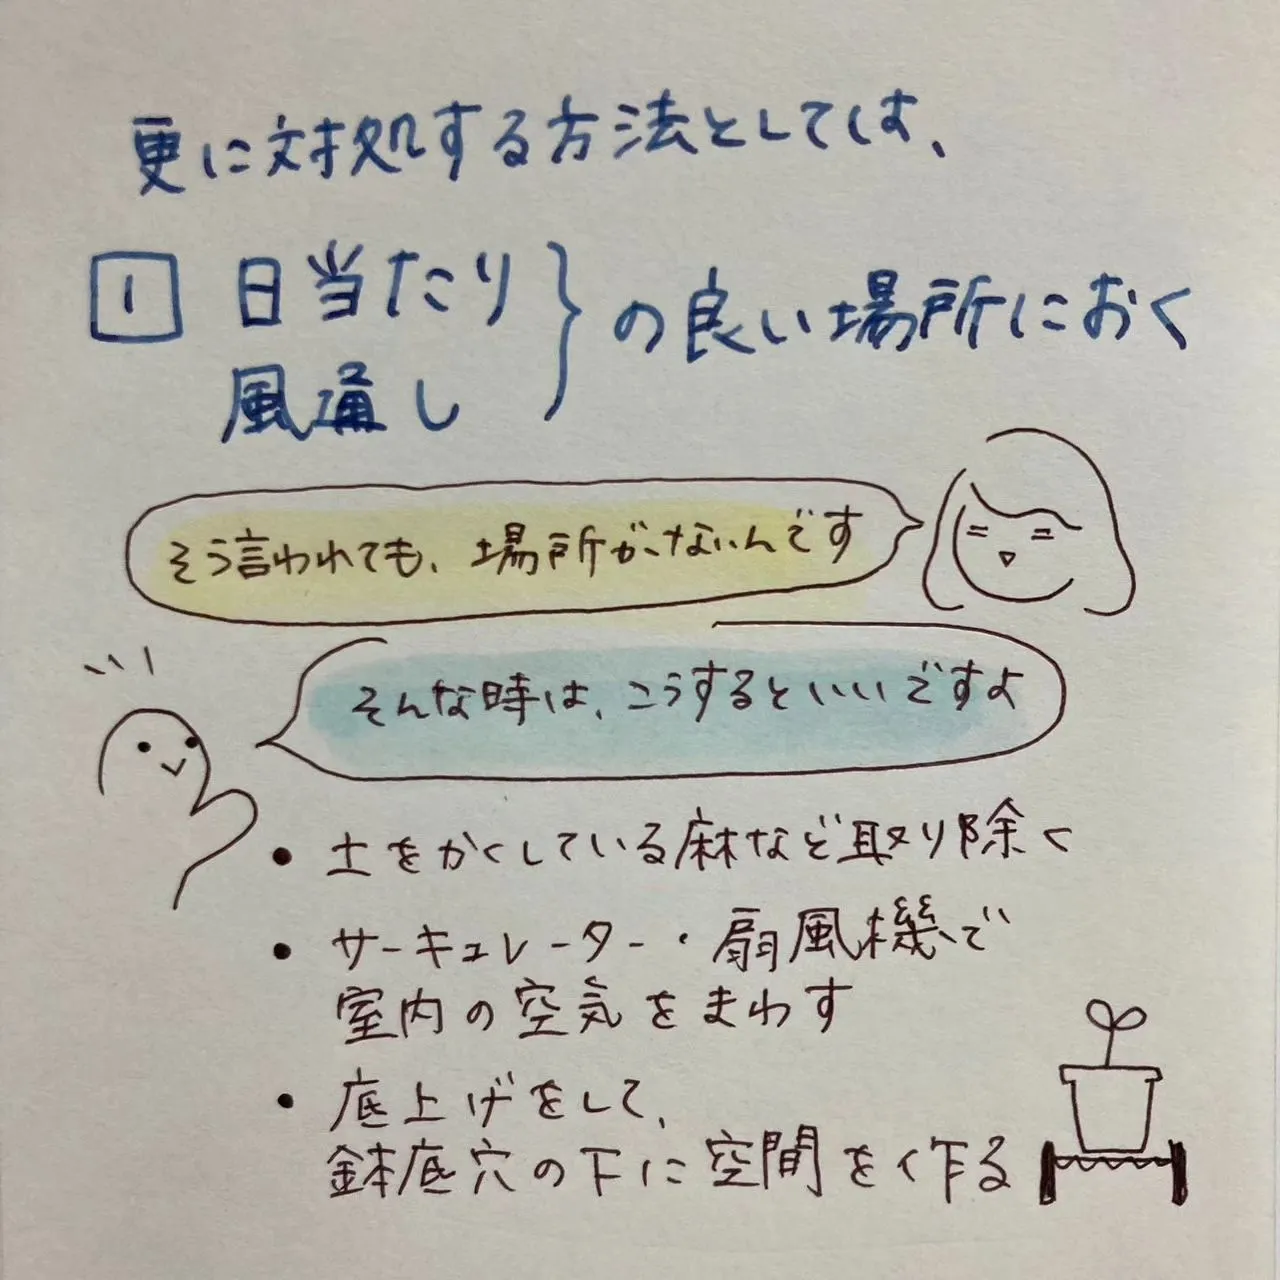 更に対処する方法としては、
1 日当たり
風通し
の良い場所におく
そう言われても、場所がないんです
そんな時は、こうするといいですよ
・土をかくしている麻など取り除く
・サーキュレーター・扇風機で
室内の空気をまわす
・底上げをして、
鉢底穴の下に空間を作る